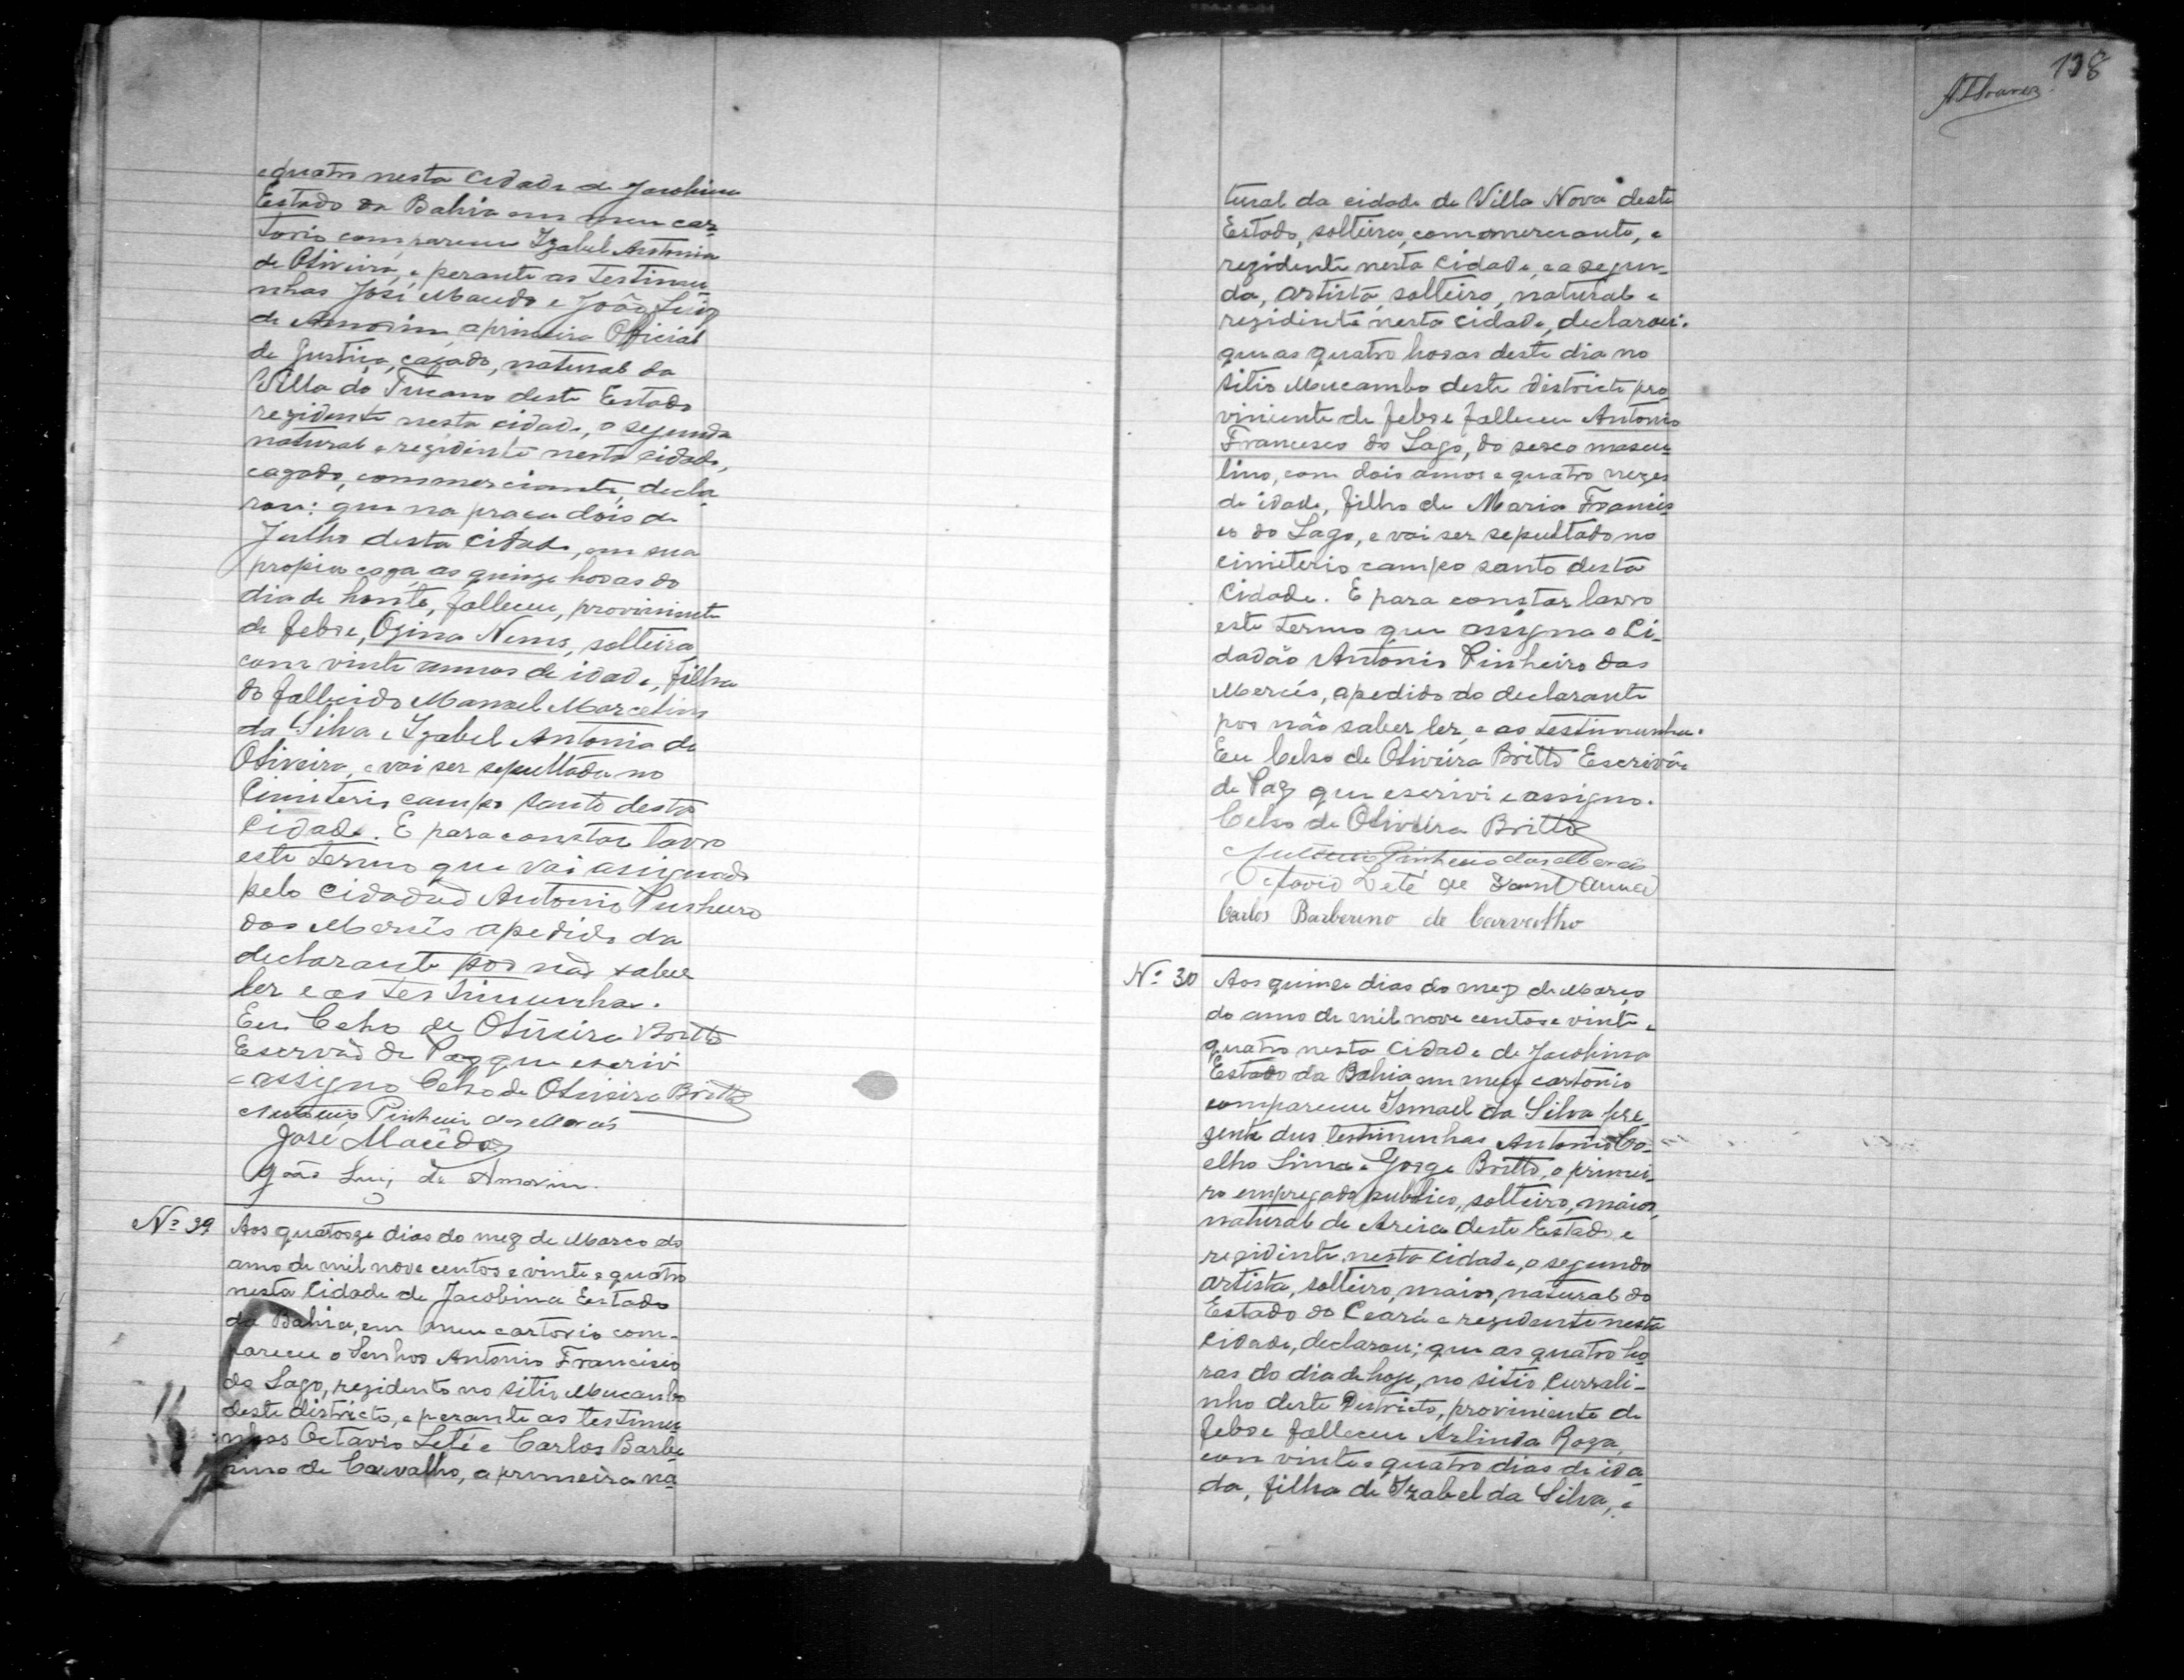 e quatro nesta cidade de Jacobina
Estado da Bahia em meu car-
torio compareceu Izabel Antonia
de Oliveira, e perante as testimu-
nhas José Macedo e João Luiz
de Amorim, a primeira Official
de Justiça, cazado, natural da
Villa do Tucano deste Estado
rezidente nesta cidade, o segunda
natural e rezidente nesta cidade,
cazado, commerciante, decla-
rou: que na praça dois de
Julho desta cidade, em sua
propia caza, as quinze horas do
dia de honte, falleceu, proviniente
de febre, Ozina Nems, solteira,
com vinte annos de idade, filha
do fallecido Manoel Marcelino
da Silva e Izabel Antonia de
Oliveira, e vai ser sepultada no
Cimiterio campo santo desta
Cidade. E para constar lavro
este termo que vai assignado
pelo Cidadad Antonio Pinheiro
das Mercês apedido da
declarante por não saber
ler e as testimunhas.
Eu Celso de Oliveira Britto
Escrivão de Paz que escrivi
e assigno Celso de Oliveira Britto
Antonio Pinheiro das Mercês
José Macêdo
João Luiz de Amorim.
Nº 29 Aos quatorze dias do mez de Março do
anno de mil nove centos e vinte e quatro
nesta Cidade de Jacobina Estado
da Bahia, em meu cartorio com-
pareceu o Senhor Antonio Francisco
do Lago, rezidente no sitio Mucambo
deste districto, e perante as testimu-
nhas Octavio Leté e Carlos Barbe-
rino de Carvalho, a primeira na-
138
tural da cidade de Villa Nova deste
Estado, solteiro, commerciante, e
rezidente nesta cidade, e a segun-
da, artista, solteiro, natural e
rezidinte nesta cidade, declarou:
que as quatro horas deste dia no
sitio Mucambo deste districto pro-
viniente de febre falleceu Antonio
Francisco do Lago, do sexo mascu-
lino, com dois annos e quatro mezes
de idade, filho de Maria Francis-
ca do Lago, e vai ser sepultado no
cimiterio campo santo desta
Cidade. E para constar lavro
este termo que assigna o Ci-
dadão Antonio Pinheiro das
Mercês, apedido do declarante
por não saber ler, e as testimunhas.
Eu Celso de Oliveira Britto Escrivão
de Paz que escrivi e assigno.
Celso de Oliveira Britto
Antonio Pinheiro das Mercês
Octavio Leté de Sant'Anna
Carlos Barberino de Carvalho
Nº 30 Aos quinze dias do mez de Março
do anno de mil nove centos e vinte e
quatro nesta Cidade de Jacobina
Estado da Bahia, em meu cartorio
compareceu Ismael da Silva pre-
zente dus testimunhas Antonio Co-
elho Lima e Jorge Britto, o primei-
ro empregado publico, solteiro, maior,
natural de Areia deste Estado, e
rezidinte nesta cidade, o segundo
artista, solteiro, maior, natural do
Estado do Ceará e rezidente nesta
cidade, declarou; que as quatro ho-
ras do dia de hoje, no sitio Currali-
nho deste Districto, proviniente de
febre falleceu Arlinda Roza,
com vinte e quatro dias de ida-
da, filha de Izabel da Silva, e